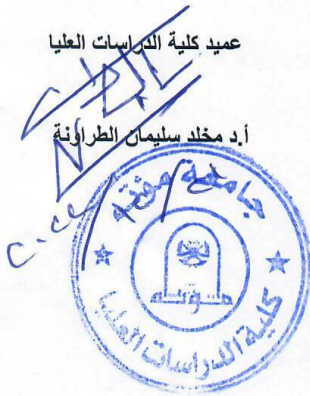 عميد كلية الدراسات العليا
أ.د مخلد سليمان الطراونة
جامعة مؤتة
مؤتة
كلية الدراسات العليا